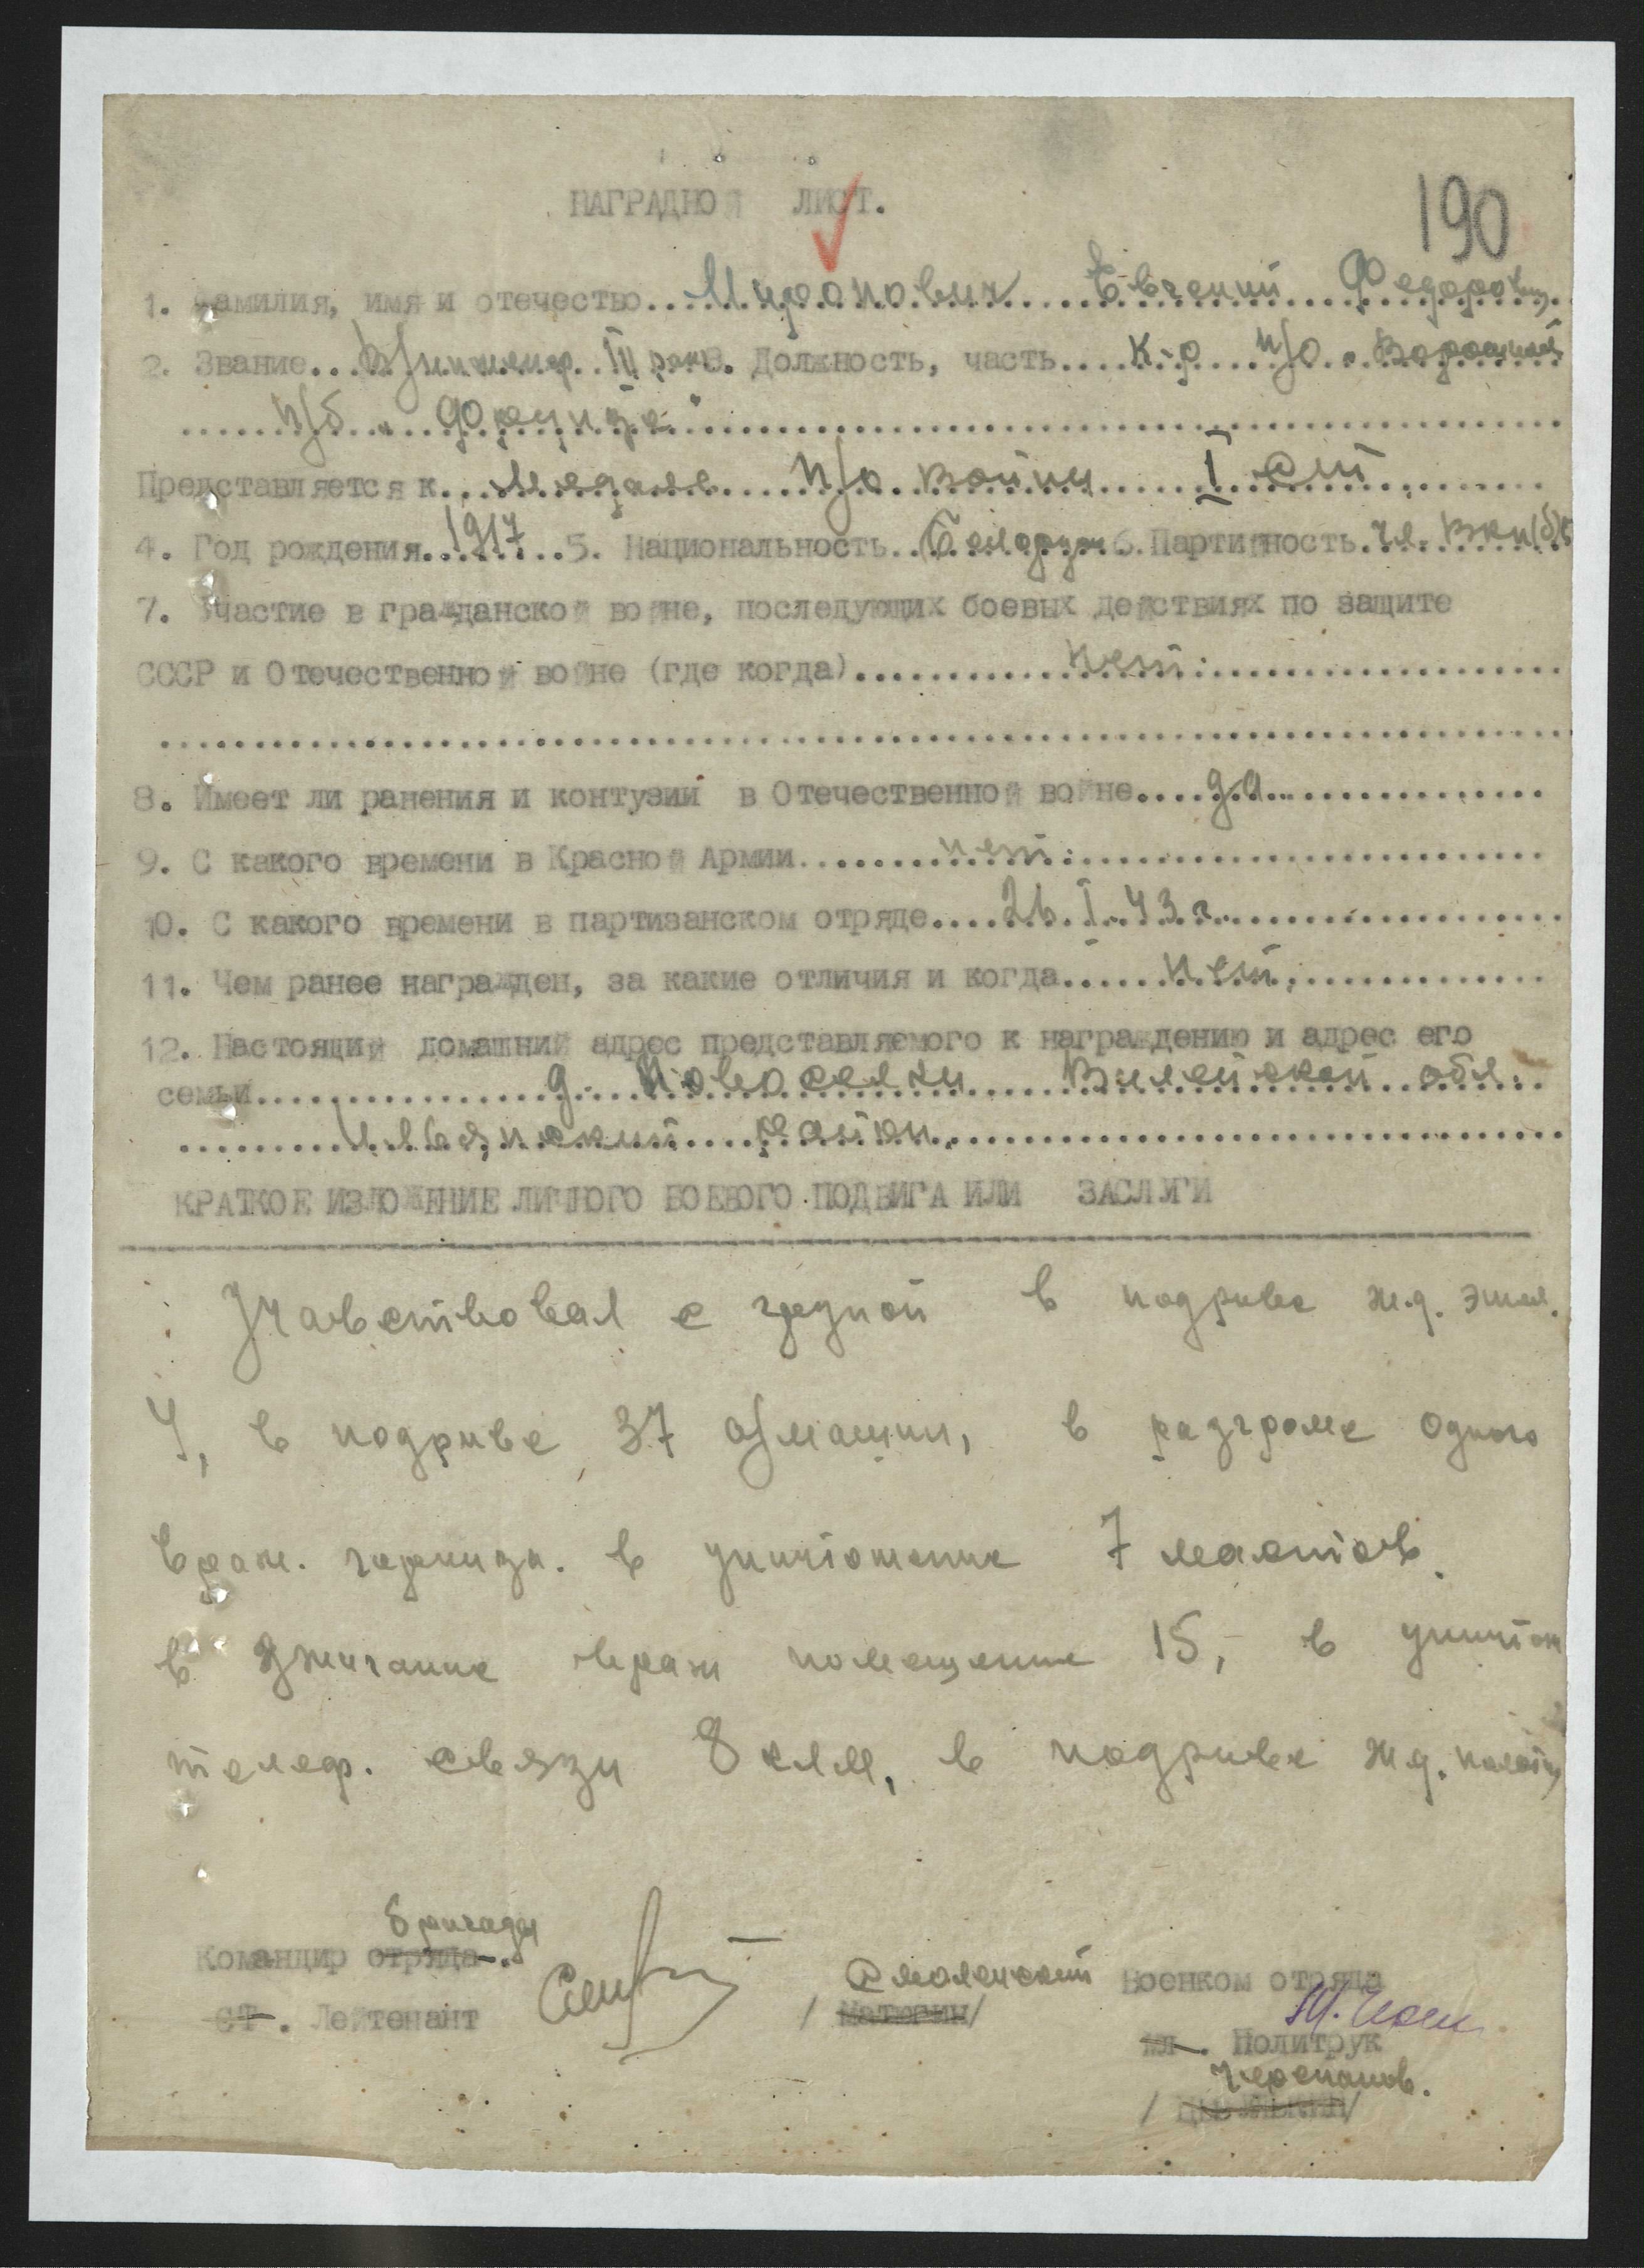 НАГРАДНОЙ ЛИСТ.
190
1. Фамилия, имя и отечество...Миронович.....Евгений...Федорович
2. Звание...В/инженер. III ранг. Должность, часть....К-р....п/о. "Ворошилов
......п/б. "Фрунзе"......
Представляется к...Медаль....п/о войны......I ст.......
4. Год рождения..1917...5. Национальность..Белорус 6. Партийность.чл. ВКП(б)б
7. Участие в гражданской войне, последующих боевых действиях по защите
СССР и Отечественной войне (где когда)............нет......
8. Имеет ли ранения и контузии в Отечественной войне....да......
9. С какого времени в Красной Армии........нет......
10. С какого времени в партизанском отряде....26.I.43 г......
11. Чем ранее награжден, за какие отличия и когда......нет......
12. Настоящий домашний адрес представляемого к награждению и адрес его
семьи................д. Новоселки.....Вилейской обл.
........Ильянский...район.......
КРАТКОЕ ИЗЛОЖЕНИЕ ЛИЧНОГО БОЕВОГО ПОДВИГА ИЛИ ЗАСЛУГИ
Учавствовал с групой в подриве ж.д. эшел.
4, в подриве 37 а/машин, в разгроме одного
враж. гарнизн. в уничтожение 7 мостов.
в зжигание враж помещение 15, в уничтож
телеф. связи 8 клм, в подриве ж.д. полотн
бригады
Командир отряда.
Смоленский Военком отряда
ст. Лейтенант / Матюгин/
мл. Политрук
Черепанов.